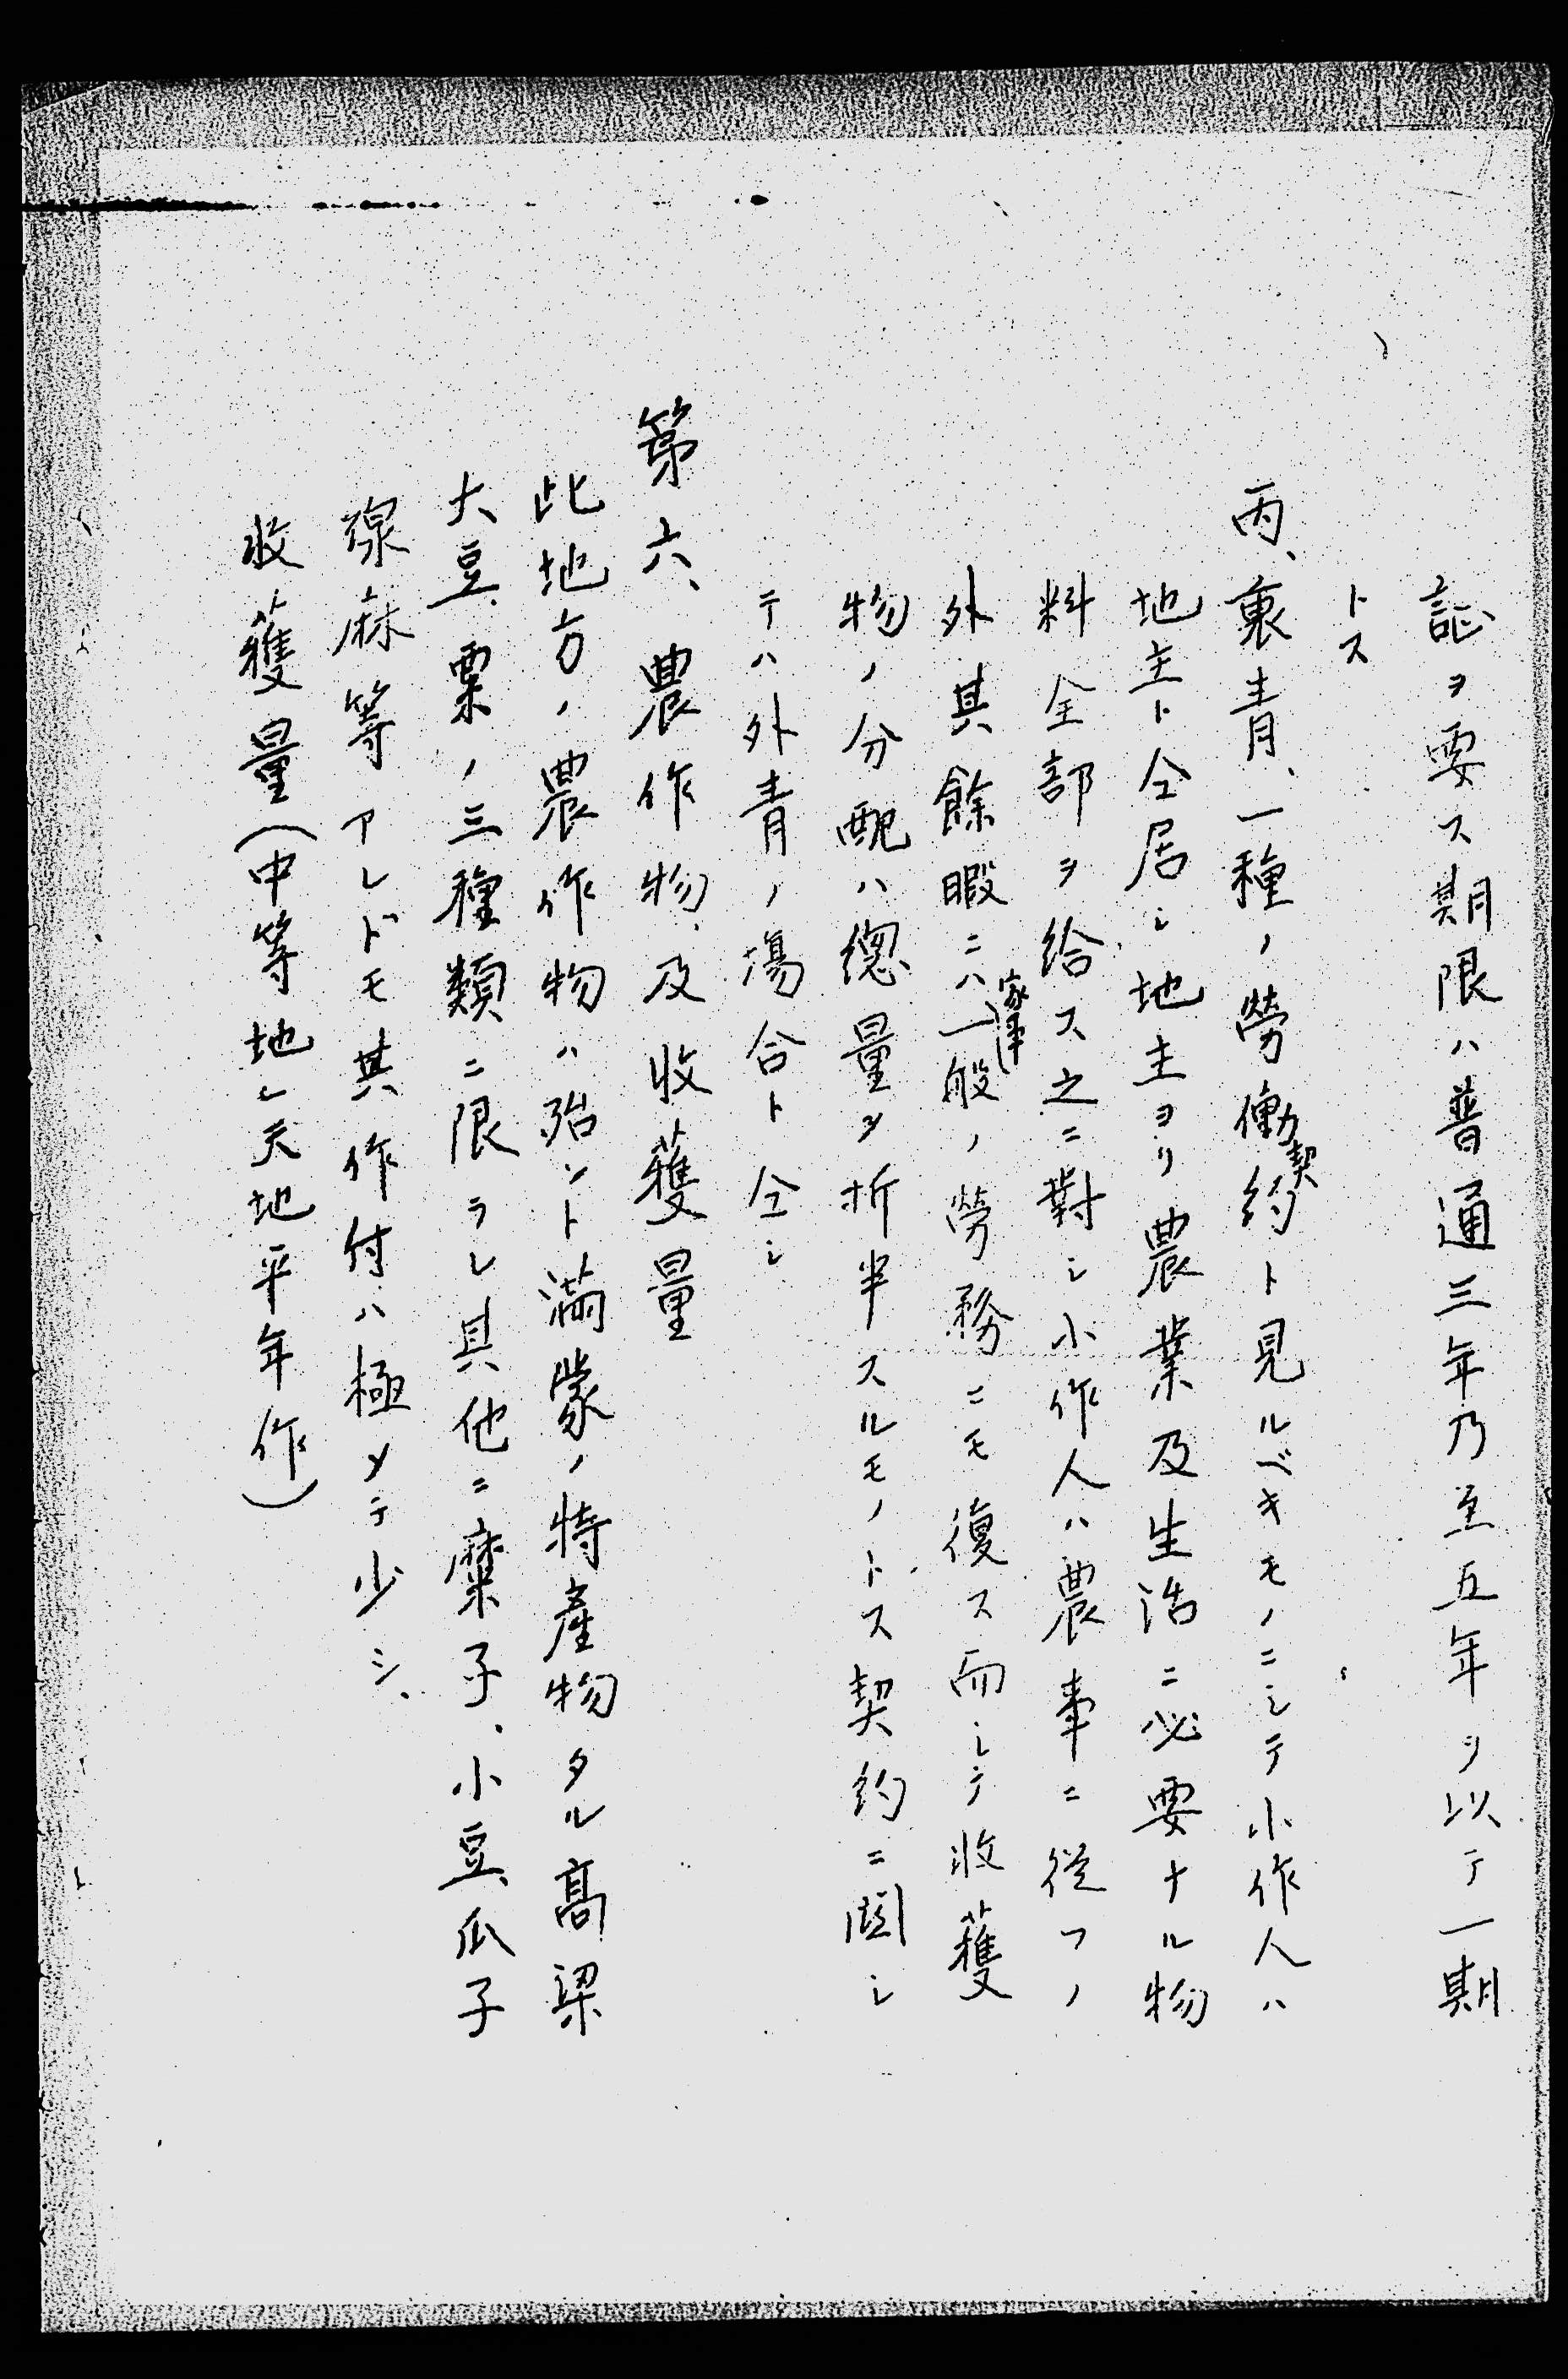 証ヲ要ス期限ハ普通三年乃至五年ヲ以テ一期
トス
丙、裏青、一種ノ勞働契約ト見ルベキモノニシテ小作人ハ
地主ト仝居シ地主ヨリ農業及生活ニ必要ナル物
料全部ヲ給ス之ニ對シ小作人ハ農事ニ從フノ
外其餘暇ニハ家事一般ノ勞務ニモ復ス而シテ收獲
物ノ分配ハ總量ヲ折半スルモノトス契約ニ関シ
テハ外青ノ場合ト仝シ
第六、農作物及收獲量
此地方ノ農作物ハ殆ント満蒙ノ特産物タル高梁
大豆、粟ノ三種類ニ限ラレ其他ニ糜子、小豆、瓜子
線麻等アレドモ其作付ハ極メテ少シ、
收獲量(中等地レ天地平年作)